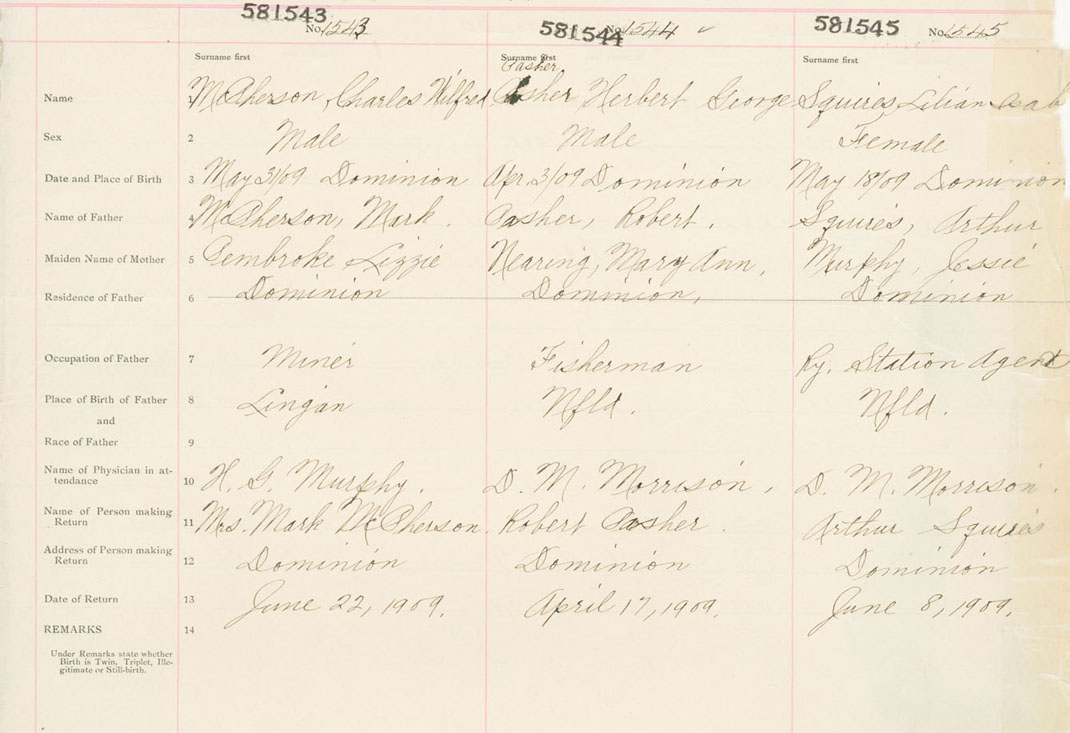 581543 581544 581545
No. 1543 No. 1544 No. 1545
Surname first Surname first Surname first
Casher
Name 1 McPherson, Charles Wilfred Herbert George Squires, Lilian
Sex 2 Male Male Female
Date and Place of Birth 3 May 31/09 Dominion Apr. 3/09 Dominion May 18/09 Dominion
Name of Father 4 McPherson, Mark. Casher, Robert. Squires, Arthur
Maiden Name of Mother 5 Pembroke Lizzie Nearing, Mary Ann, Murphy, Jessie
Residence of Father 6 Dominion Dominion, Dominion
Occupation of Father 7 Miner Fisherman Ry. Station Agent
Place of Birth of Father 8 Lingan Nfld. Nfld.
and
Race of Father 9
Name of Physician in at-
tendance 10 H. G. Murphy. D. M. Morrison, D. M. Morrison.
Name of Person making
Return 11 Mrs. Mark McPherson. Robert Casher. Arthur Squires
Address of Person making
Return 12 Dominion Dominion Dominion
Date of Return 13 June 22, 1909. April 17, 1909. June 8, 1909.
REMARKS 14
Under Remarks state whether
Birth is Twin, Triplet, Ille-
gitimate or Still-birth.